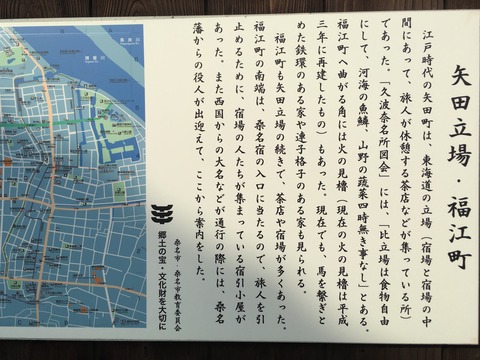 矢田立場・福江町
江戸時代の矢田町は、東海道の立場（宿場と宿場の中
間にあって、旅人が休憩する茶店などが集っている所）
であった。「久波奈名所図会」には、「比立場は食物自由
にして、河海の魚鱗、山野の蔬菜四時無き事なし」とある。
福江町へ曲がる角には火の見櫓（現在の火の見櫓は平成
三年に再建したもの）もあった。現在でも、馬を繋ぎと
めた鉄環のある家や連子格子のある家も見られる。
福江町も矢田立場の続きで、茶店や宿場が多くあった。
福江町の南端は、桑名宿の入口に当たるので、旅人を引
止めるために、宿場の人たちが集まっている宿引小屋が
あった。また西国からの大名などが通行の際には、桑名
藩からの役人が出迎えて、ここから案内をした。
桑名市　桑名市教育委員会
郷土の宝・文化財を大切に